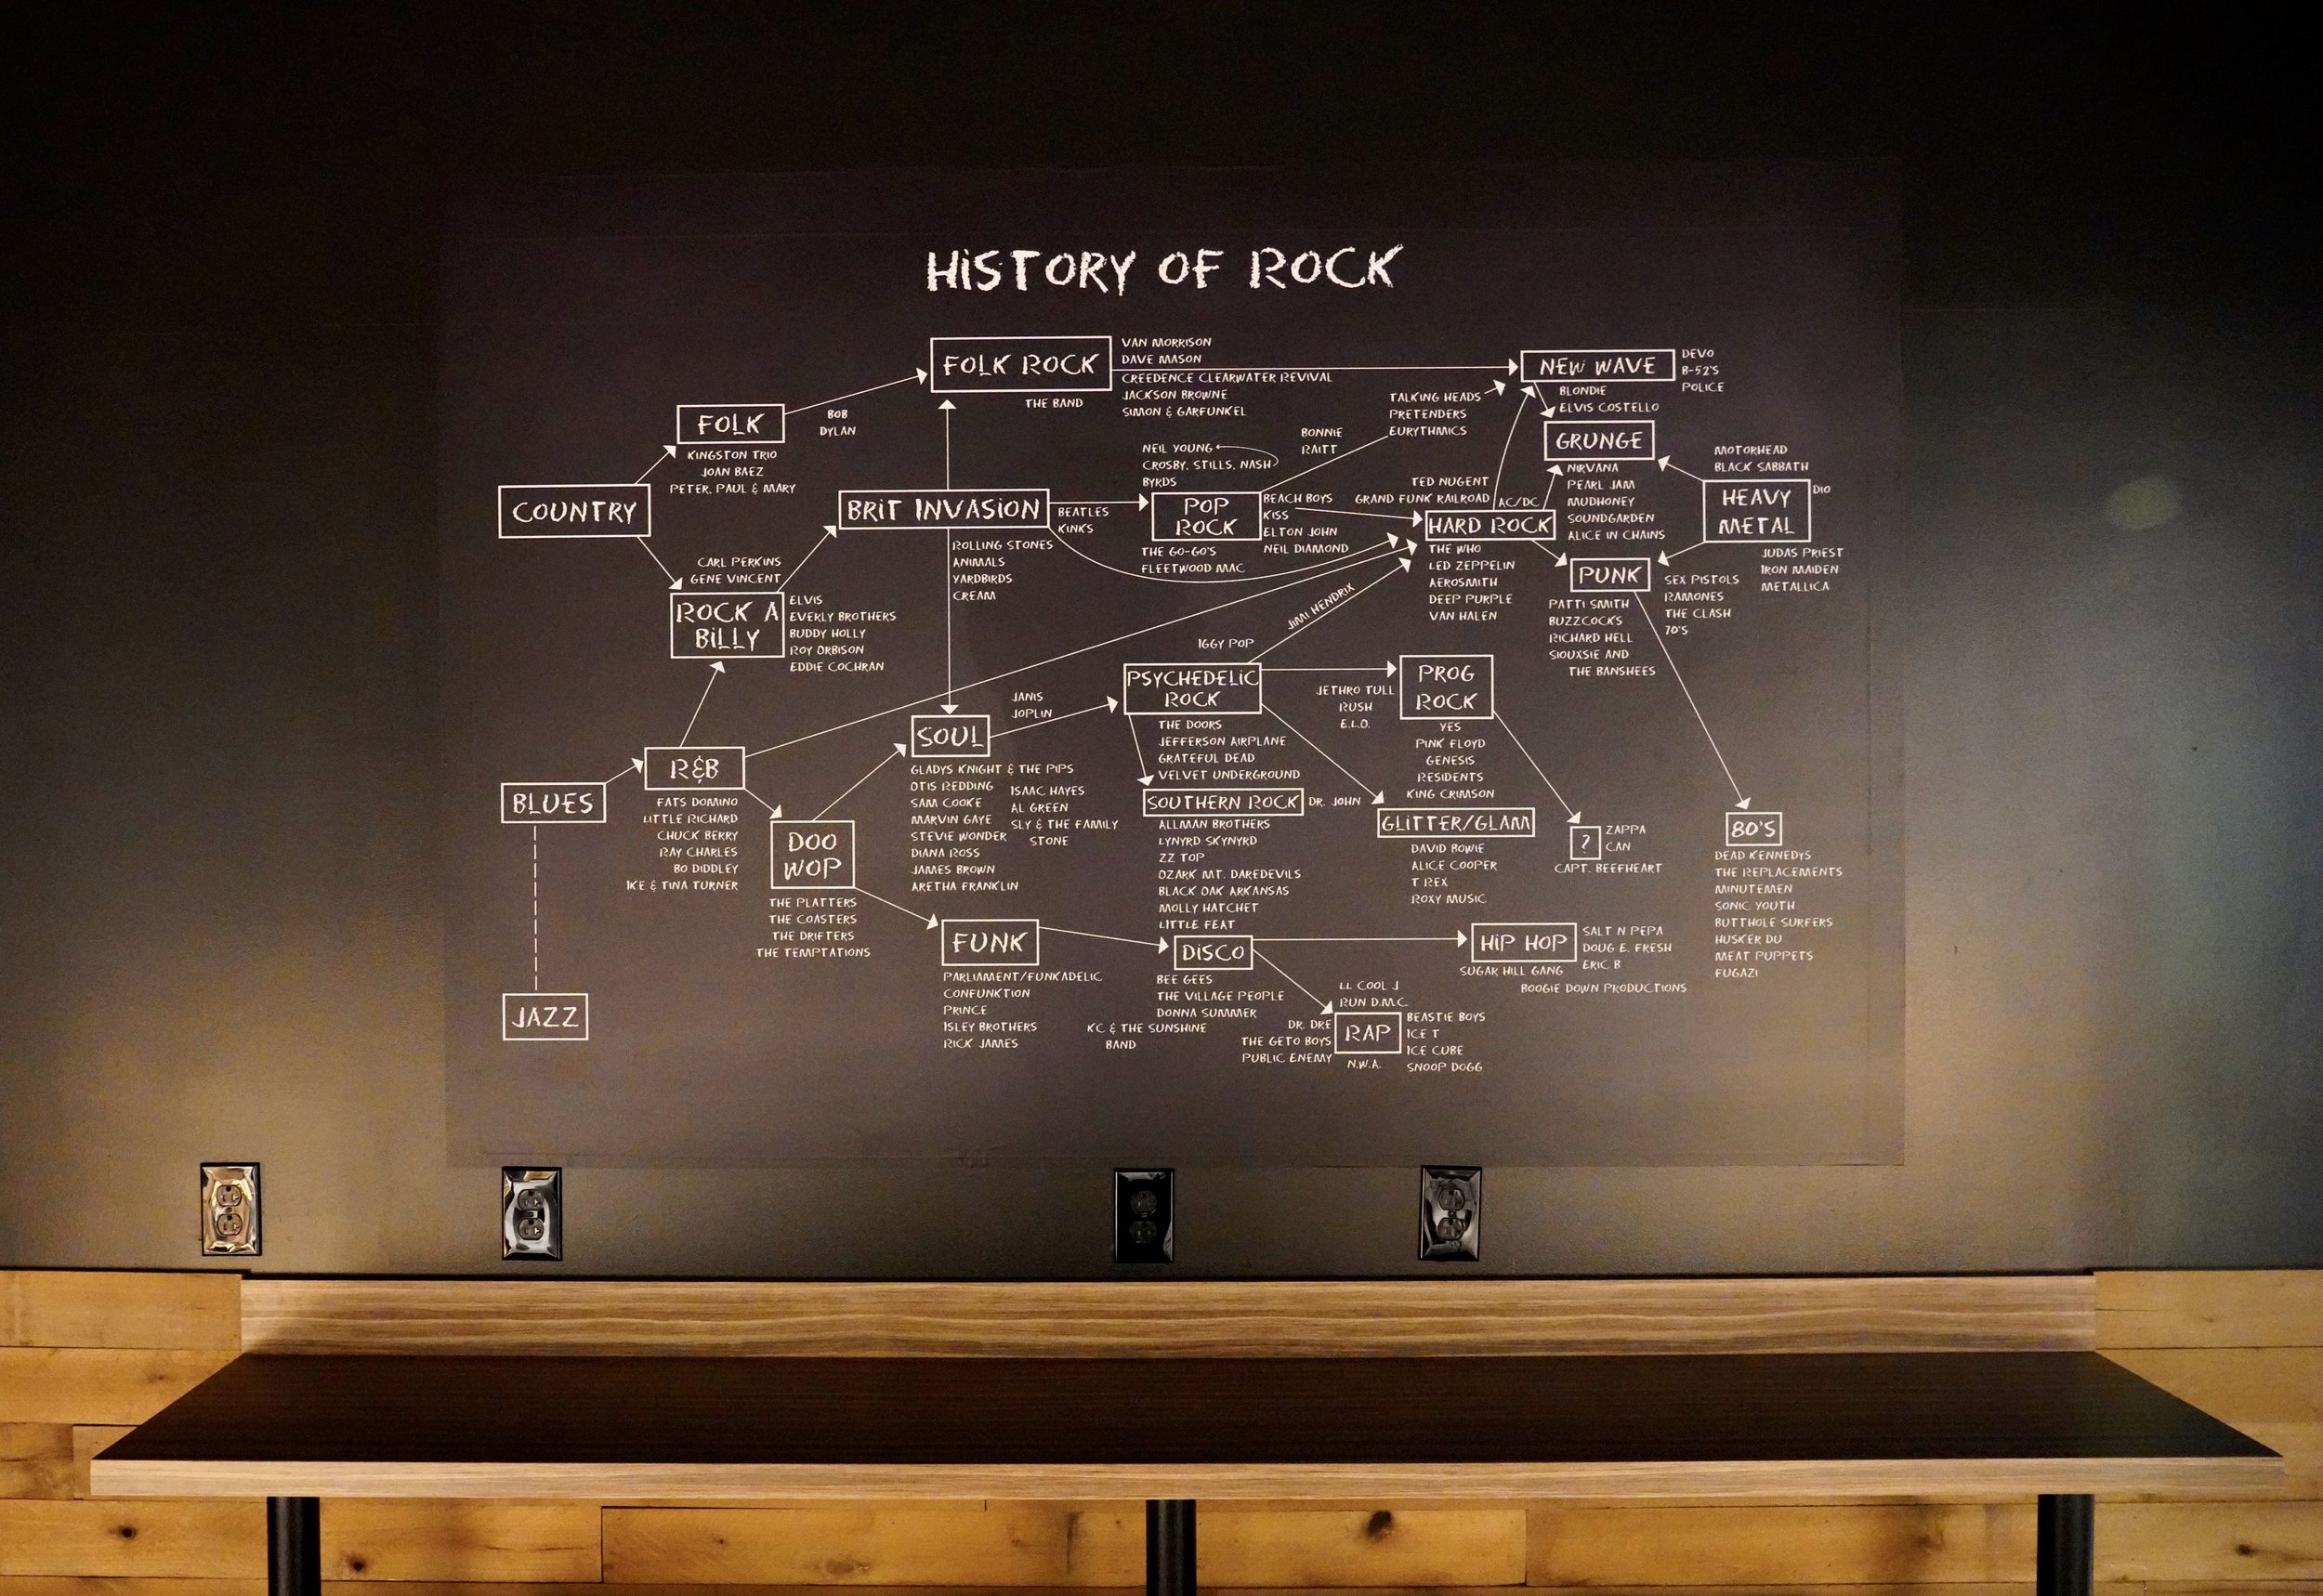 HISTORY OF ROCK
FOLK ROCK
VAN MORRISON
DAVE MASON
CREEDENCE CLEARWATER REVIVAL
JACKSON BROWNE
SIMON & GARFUNKEL
THE BAND
NEW WAVE
DEVO
B-52'S
POLICE
BLONDIE
ELVIS COSTELLO
TALKING HEADS
PRETENDERS
EURYTHMICS
FOLK
BOB
DYLAN
KINGSTON TRIO
JOAN BAEZ
PETER, PAUL & MARY
GRUNGE
NIRVANA
PEARL JAM
MUDHONEY
SOUNDGARDEN
ALICE IN CHAINS
BONNIE
RAITT
NEIL YOUNG
CROSBY, STILLS, NASH
BYRDS
MOTORHEAD
BLACK SABBATH
HEAVY
METAL
DIO
JUDAS PRIEST
IRON MAIDEN
METALLICA
COUNTRY
BRIT INVASION
BEATLES
KINKS
ROLLING STONES
ANIMALS
YARDBIRDS
CREAM
POP
ROCK
BEACH BOYS
KISS
ELTON JOHN
NEIL DIAMOND
THE GO-GO'S
FLEETWOOD MAC
TED NUGENT
GRAND FUNK RAILROAD
AC/DC
HARD ROCK
THE WHO
LED ZEPPELIN
AEROSMITH
DEEP PURPLE
VAN HALEN
PUNK
SEX PISTOLS
RAMONES
THE CLASH
70'S
PATTI SMITH
BUZZCOCKS
RICHARD HELL
SIOUXSIE AND
THE BANSHEES
CARL PERKINS
GENE VINCENT
ROCK A
BILLY
ELVIS
EVERLY BROTHERS
BUDDY HOLLY
ROY ORBISON
EDDIE COCHRAN
JIMI HENDRIX
IGGY POP
PSYCHEDELIC
ROCK
THE DOORS
JEFFERSON AIRPLANE
GRATEFUL DEAD
VELVET UNDERGROUND
JETHRO TULL
RUSH
E.L.O.
PROG
ROCK
YES
PINK FLOYD
GENESIS
RESIDENTS
KING CRIMSON
JANIS
JOPLIN
SOUL
GLADYS KNIGHT & THE PIPS
OTIS REDDING
SAM COOKE
MARVIN GAYE
STEVIE WONDER
DIANA ROSS
JAMES BROWN
ARETHA FRANKLIN
ISAAC HAYES
AL GREEN
SLY & THE FAMILY
STONE
R&B
FATS DOMINO
LITTLE RICHARD
CHUCK BERRY
RAY CHARLES
BO DIDDLEY
IKE & TINA TURNER
BLUES
DOO
WOP
THE PLATTERS
THE COASTERS
THE DRIFTERS
THE TEMPTATIONS
SOUTHERN ROCK
DR. JOHN
ALLMAN BROTHERS
LYNYRD SKYNYRD
ZZ TOP
OZARK MT. DAREDEVILS
BLACK OAK ARKANSAS
MOLLY HATCHET
LITTLE FEAT
GLITTER/GLAM
DAVID BOWIE
ALICE COOPER
T REX
ROXY MUSIC
?
ZAPPA
CAN
CAPT. BEEFHEART
80'S
DEAD KENNEDYS
THE REPLACEMENTS
MINUTEMEN
SONIC YOUTH
BUTTHOLE SURFERS
HUSKER DU
MEAT PUPPETS
FUGAZI
JAZZ
FUNK
PARLIAMENT/FUNKADELIC
CONFUNKTION
PRINCE
ISLEY BROTHERS
RICK JAMES
DISCO
BEE GEES
THE VILLAGE PEOPLE
DONNA SUMMER
KC & THE SUNSHINE
BAND
HIP HOP
SALT N PEPA
DOUG E. FRESH
ERIC B
SUGAR HILL GANG
BOOGIE DOWN PRODUCTIONS
LL COOL J
RUN D.M.C.
DR. DRE
THE GETO BOYS
PUBLIC ENEMY
RAP
BEASTIE BOYS
ICE T
ICE CUBE
SNOOP DOGG
N.W.A.